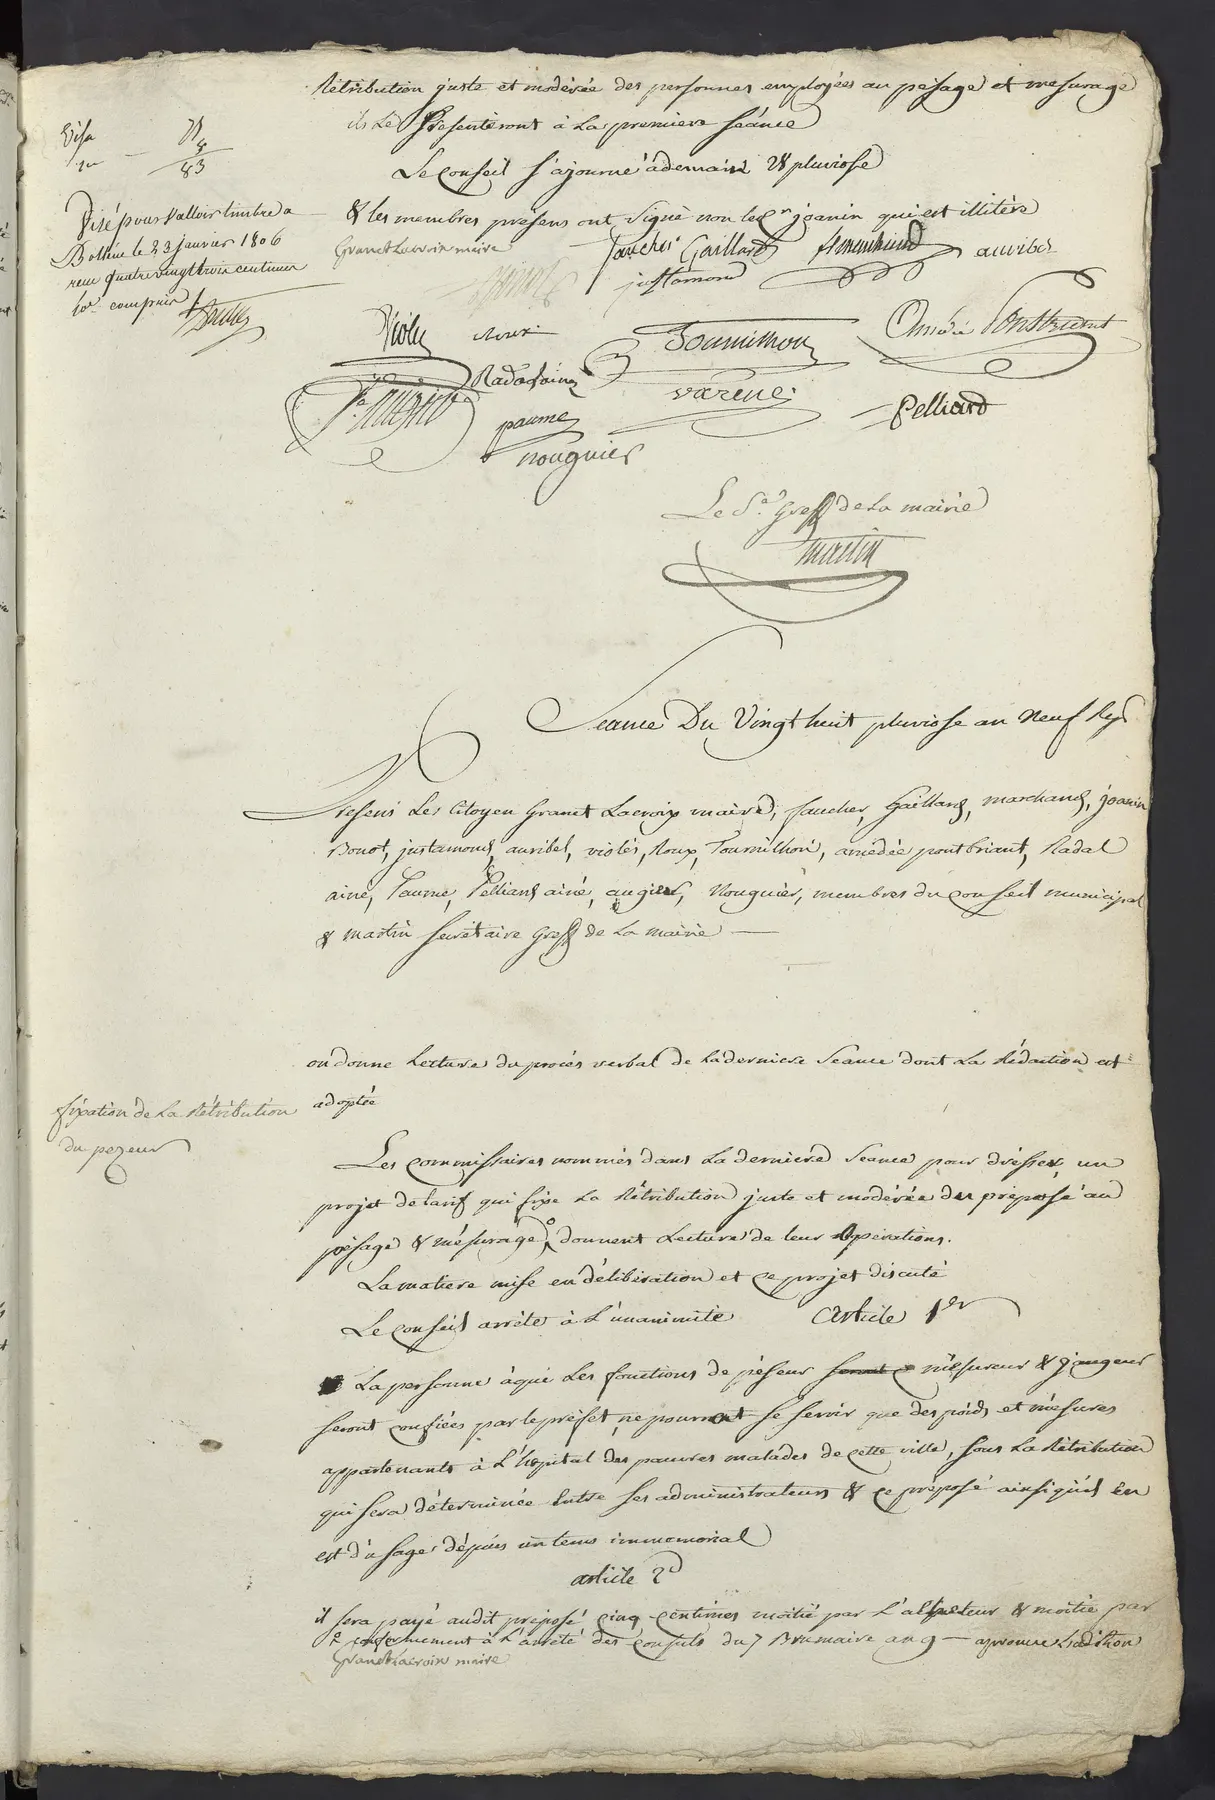 Rétribution juste et modérée des personnes employées au pésage et mesurage
ils le présenteront à la premiere séance
Le conseil s'ajourne à demain 28 pluviose
& les membres présens ont signé non le Cn joanin qui est illitéré
Visa
75
8
83
Visé pour valloir timbre a
Bollène le 23 janvier 1806
reçu quatre vingt trois centimes
compris
Granet Lacroix maire
faucher Gaillard auribel
justamond
Violès roux Tournillon Amédée Pontbriant
Radal aine varene
paume Pelliard
nouguier
Le S.re Greff de la mairie
martin
Seance Du Vingt huit pluviose an Neuf Rep
Presens Les Citoyen Granet Lacroix maire, faucher, Gaillard, marchand, joanin
Bonot, justamond, auribel, violés, Roux, Tournilhon, amédée pontbriant, Radal
ainé, Paume, Pelliard ainé, augier, Nouguier, membres du conseil municipal
& martin secrétaire Greff de la mairie
on donne lecture du procés verbal de la derniere seance dont la rédaction est
adoptée
fixation de la Rétribution
du pezeur
Les commissaires nommés dans la derniére seance pour drésser un
projet de tarif qui fixe la Rétribution juste et modérée du préposé au
pésage & mésurage, donnent lecture de leur opérations.
La matiere mise en délibération et ce projet discuté
Le conseil arrête à l'unanimité Article 1er
La personne à qui les fonctions de péseur mésureur & jaugeur
seront confiées par le préfet, ne pourront se servir que des poids et mésures
appartenants à l'hopital des pauvres malades de cette ville, sous la Rétribution
qui sera déterminée entre ses administrateurs & ce préposé ainsi qu'il en
est d'usage dépuis un tems immemorial
article 2d
il sera payé audit préposé cinq centimes moitié par l'acheteur & moitié par
conformement à l'arrêté des consuls du 7 Brumaire an 9 — aprouve l'adition
Granet Lacroix maire